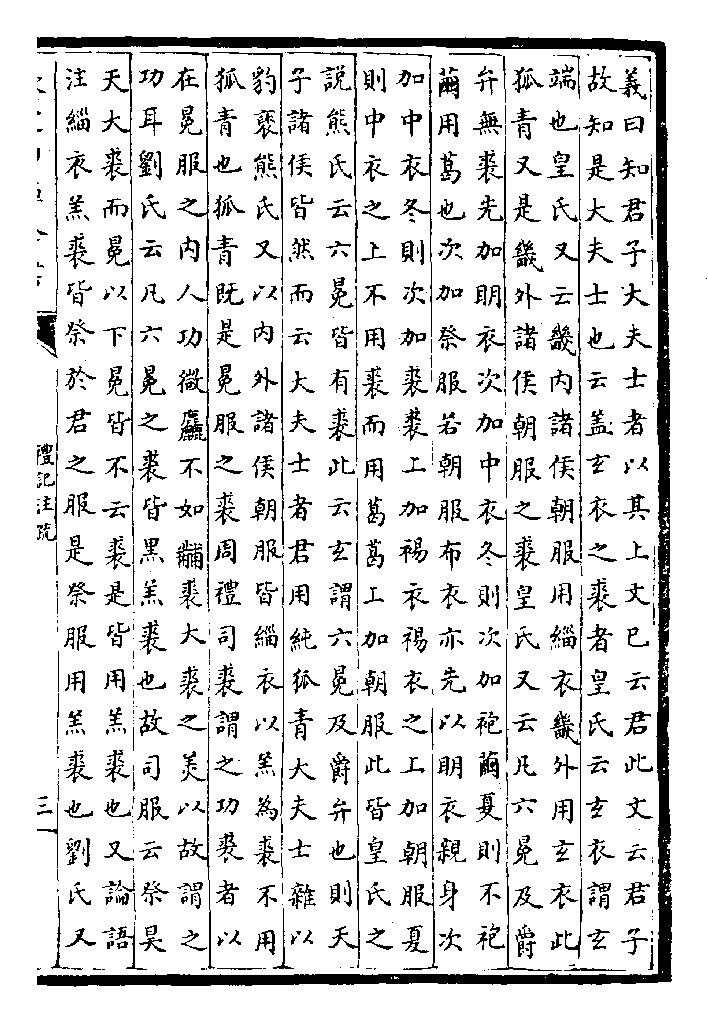 義曰知君子大夫士者以其上文已云君此文云君子
故知是大夫士也云盖玄衣之裘者皇氏云玄衣謂玄
端也皇氏又云畿内諸侯朝服用緇衣畿外用玄衣此
狐青又是畿外諸侯朝服之裘皇氏又云凡六冕及爵
弁無裘先加明衣次加中衣冬則次加袍繭夏則不袍
繭用葛也次加祭服若朝服布衣亦先以明衣親身次
加中衣冬則次加裘裘上加裼衣裼衣之上加朝服夏
則中衣之上不用裘而用葛葛上加朝服此皆皇氏之
説熊氏云六冕皆有裘此云玄謂六冕及爵弁也則天
子諸侯皆然而云大夫士者君用純狐青大夫士雜以
豹褎熊氏又以内外諸侯朝服皆緇衣以羔為裘不用
狐青也狐青既是冕服之裘周禮司裘謂之功裘者以
在冕服之内人功微麤不如黼裘大裘之美以故謂之
功耳劉氏云凡六冕之裘皆黑羔裘也故司服云祭昊
天大裘而冕以下冕皆不云裘是皆用羔裘也又論語
注緇衣羔裘皆祭於君之服是祭服用羔裘也劉氏又
禮記注疏